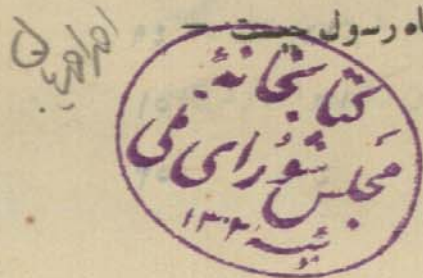 اه رسول چیست —
کتابخانهٔ
مجلس شورای ملی
۱۳۰۲